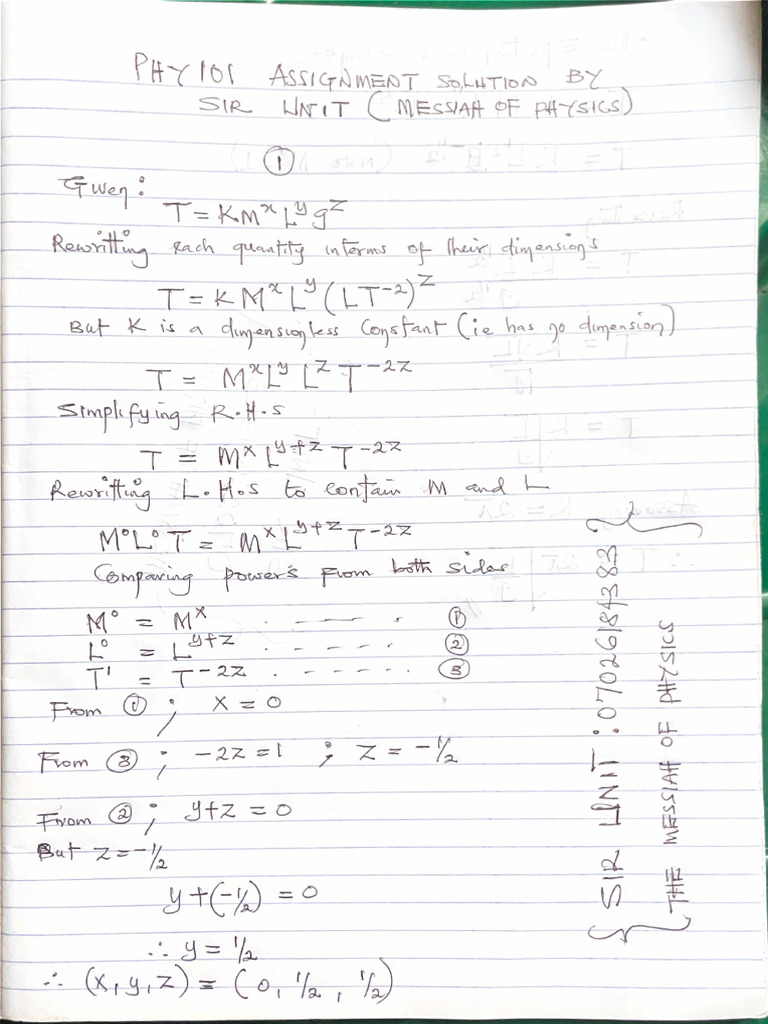 PHY101 ASSIGNMENT SOLUTION BY
SIR UNIT (MESSIAH OF PHYSICS)
①
Given:
T = KMˣLʸgᶻ
Rewritting each quantity interms of their dimensions
T = KMˣLʸ(LT⁻²)ᶻ
But K is a dimensionless Constant (ie has no dimension)
T = MˣLʸLᶻT⁻²ᶻ
Simplifying R.H.S
T = MˣLʸ⁺ᶻT⁻²ᶻ
Rewritting L.H.S to contain M and L
M⁰L⁰T = MˣLʸ⁺ᶻT⁻²ᶻ
Comparing powers from both sides
M⁰ = Mˣ . - - - - . - . ①
L⁰ = Lʸ⁺ᶻ . - - . - - - - ②
T¹ = T⁻²ᶻ . - - - - . - - . ③
From ①; x = 0
From ③; -2z = 1 ; z = -½
From ②; y+z = 0
But z = -½
y+(-½) = 0
∴ y = ½
∴ (x, y, z) = (0, ½, ½)
{ SIR UNIT : 07026184383 }
THE MESSIAH OF PHYSICS